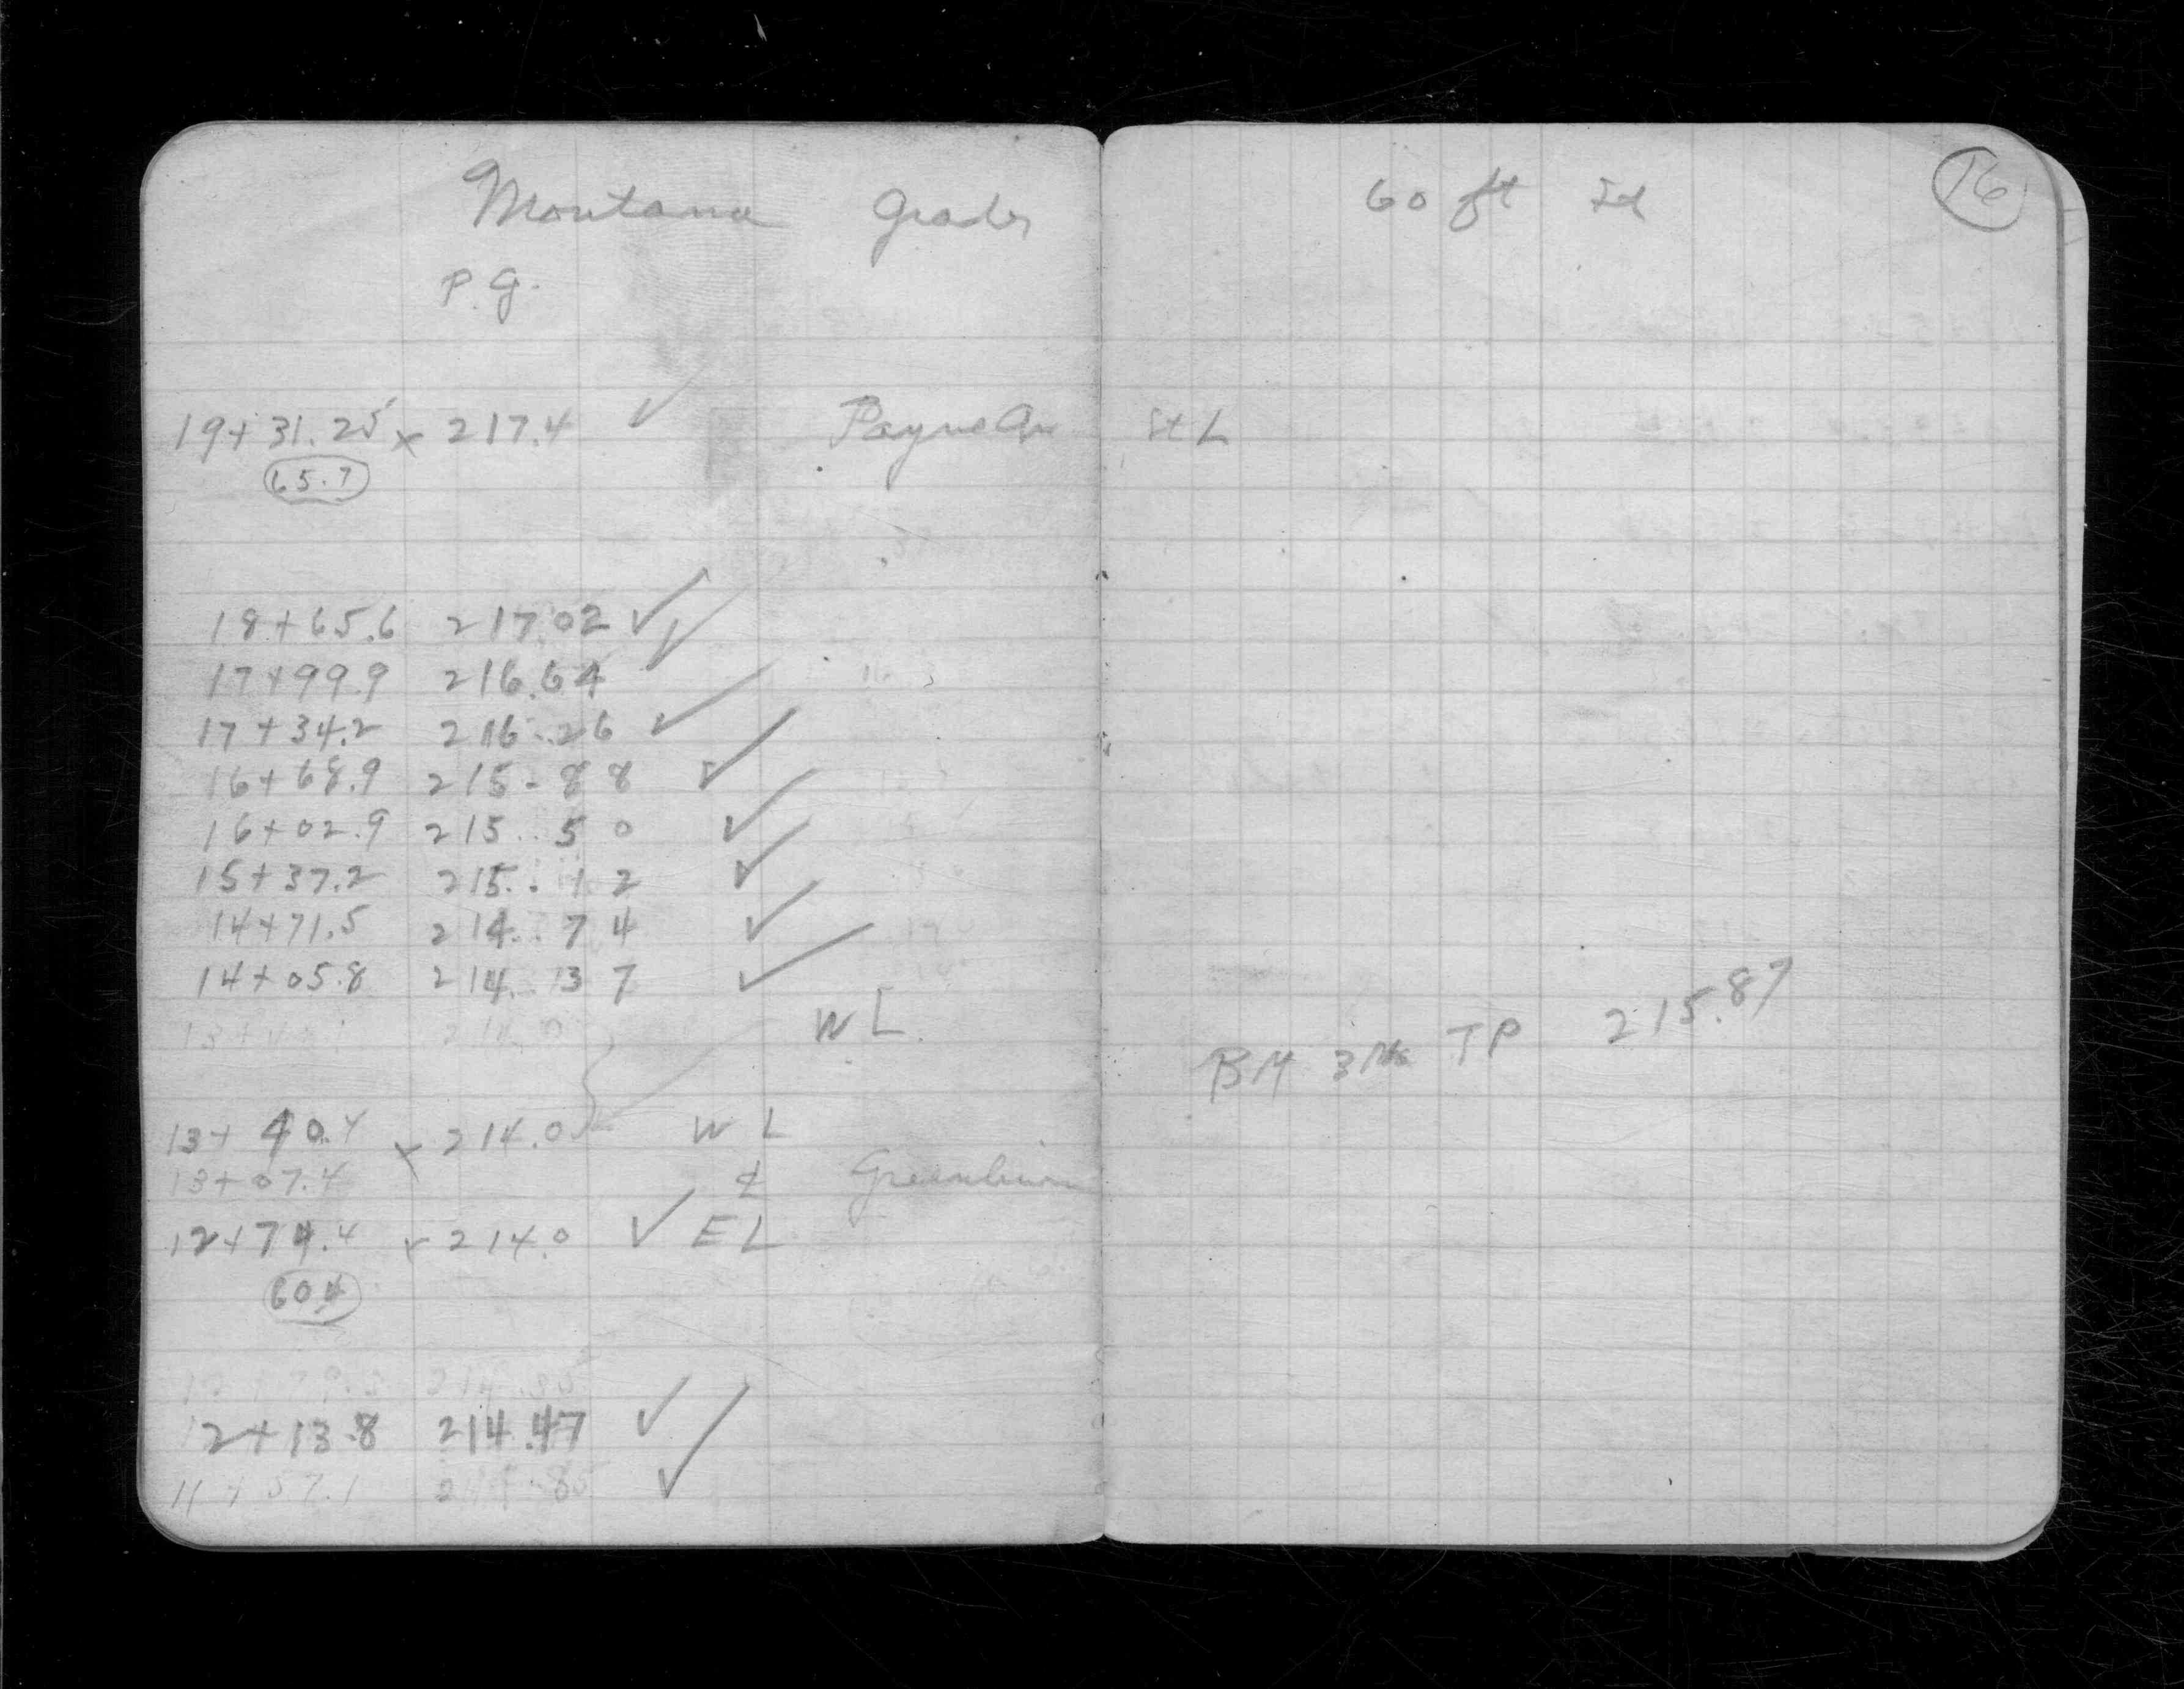 Montana Grades 60 ft Rd 16
P.G.
19+31.25 x 217.4 ✓ Payne Av St L
65.7
18+65.6 217.02 ✓
17+99.9 216.64 ✓
17+34.2 216.26 ✓
16+68.9 215.88 ✓
16+02.9 215.50 ✓
15+37.2 215.12 ✓
14+71.5 214.74 ✓
14+05.8 214.37 ✓
W L
BM TP 215.87
13+40.4 x 214.0 W L
13+07.4 ℄
12+74.4 x 214.0 ✓ E L
60.4
12+13.8 214.47 ✓
11+57.1 214.85 ✓